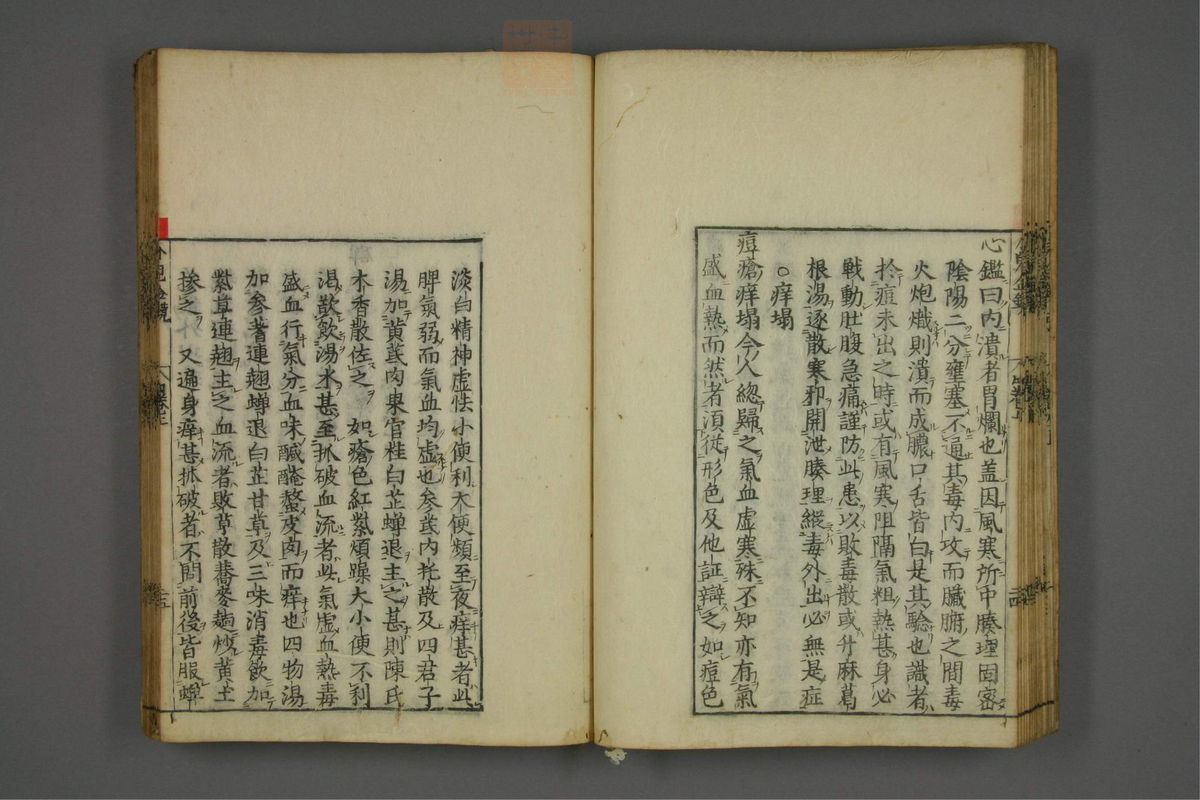 心鑑曰内潰者胃爛也盖因風寒所中腠理固密
陰陽二分壅塞不通其毒内攻而臟腑之間毒
火炮熾則潰而成膿口舌皆白是其驗也識者
於痘未出之時或有風寒阻隔氣粗熱甚身必
戰動肚腹急痛謹防此患以敗毒散或升麻葛
根湯逐散寒邪開泄腠理縱毒外出必無是症
○痒塌
痘瘡痒塌今人緫歸之氣血虚寒殊不知亦有氣
盛血熱而然者須從形色及他証辯之如痘色
淡白精神虚怯小便利大便頻至夜痒甚者此
脾氣弱而氣血均虚也参芪内托散及四君子
湯加黄芪肉果官桂白芷蟬退主之甚則陳氏
木香散佐之 如瘡色紅紫煩躁大小便不利
渴飲湯水甚至抓破血流者此氣虚血熱毒
盛血行氣分血味醎醃螫皮肉而痒也四物湯
加参芪連翹蟬退白芷甘草及三味消毒飲加
紫草連翹主之血流者敗草散蕎麥麺炒黄土
摻之 又遍身痒甚抓破者不問前後皆服蟬